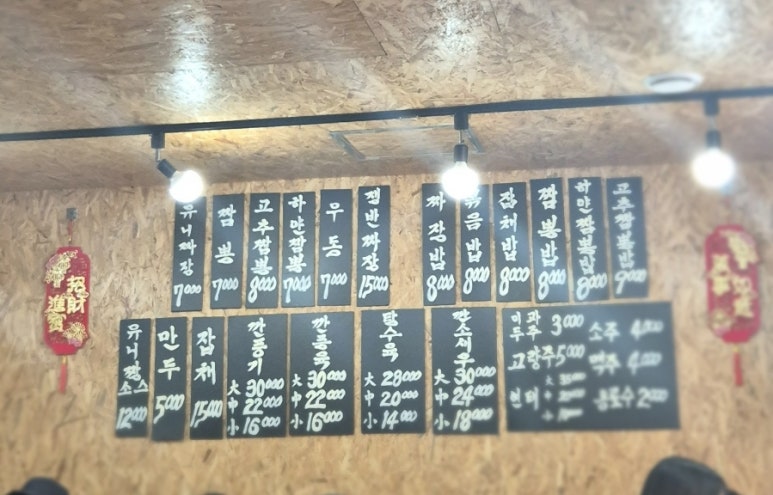 유니짜장 7000
짬뽕 7000
고추짬뽕 8000
하얀짬뽕 7000
우동 7000
쟁반짜장 15000
짜장밥 8000
볶음밥 8000
잡채밥 8000
짬뽕밥 8000
하얀짬뽕밥 8000
고추짬뽕밥 9000
招財進寶
유니짱소스 12000
만두 5000
잡채 15000
깐풍기
大 30000
中 22000
小 16000
깐풍육
大 30000
中 22000
小 16000
탕수육
大 28000
中 20000
小 14000
깐소새우
大 30000
中 24000
小 18000
3000
고량주 5000
大
中
小
소주 4000
맥주 4000
음료수 2000